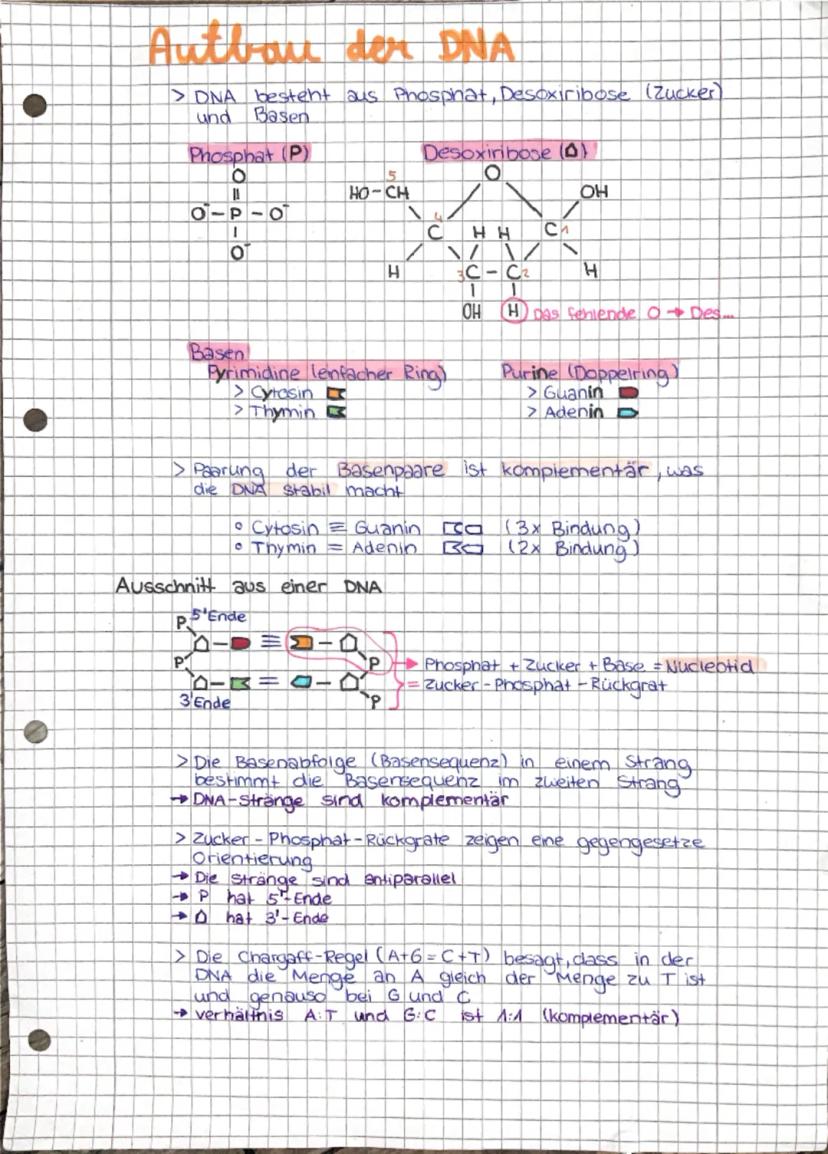 Aufbau der DNA
> DNA besteht aus Phosphat, Desoxiribose (Zucker)
und Basen
Phosphat (P)
Desoxiribose (⌂)
O
O⁻ – P – O⁻
O⁻
5
HO – CH
O
OH
4
C
H H
C 1
H
3 C – C 2
H
OH
H
Das fehlende O → Des...
Basen
Pyrimidine (enfacher Ring)
> Cytosin
> Thymin
Purine (Doppelring)
> Guanin
> Adenin
> Paarung der Basenpaare ist komplementär, was
die DNA stabil macht
° Cytosin ≡ Guanin (3x Bindung)
° Thymin = Adenin (2x Bindung)
Ausschnitt aus einer DNA
P 5'Ende
≡
P
P
→ Phosphat + Zucker + Base = Nucleotid
=
= Zucker-Phosphat-Rückgrat
3'Ende
P
> Die Basenabfolge (Basensequenz) in einem Strang
bestimmt die Basensequenz im zweiten Strang
→ DNA-Stränge sind komplementär
> Zucker-Phosphat-Rückgrate zeigen eine gegengesetze
Orientierung
→ Die Stränge sind antiparallel
→ P hat 5'-Ende
→ ⌂ hat 3'-Ende
> Die Chargaff-Regel (A+G = C+T) besagt, dass in der
DNA die Menge an A gleich der Menge zu T ist
und genauso bei G und C
→ verhältnis A:T und G:C ist 1:1 (komplementär)